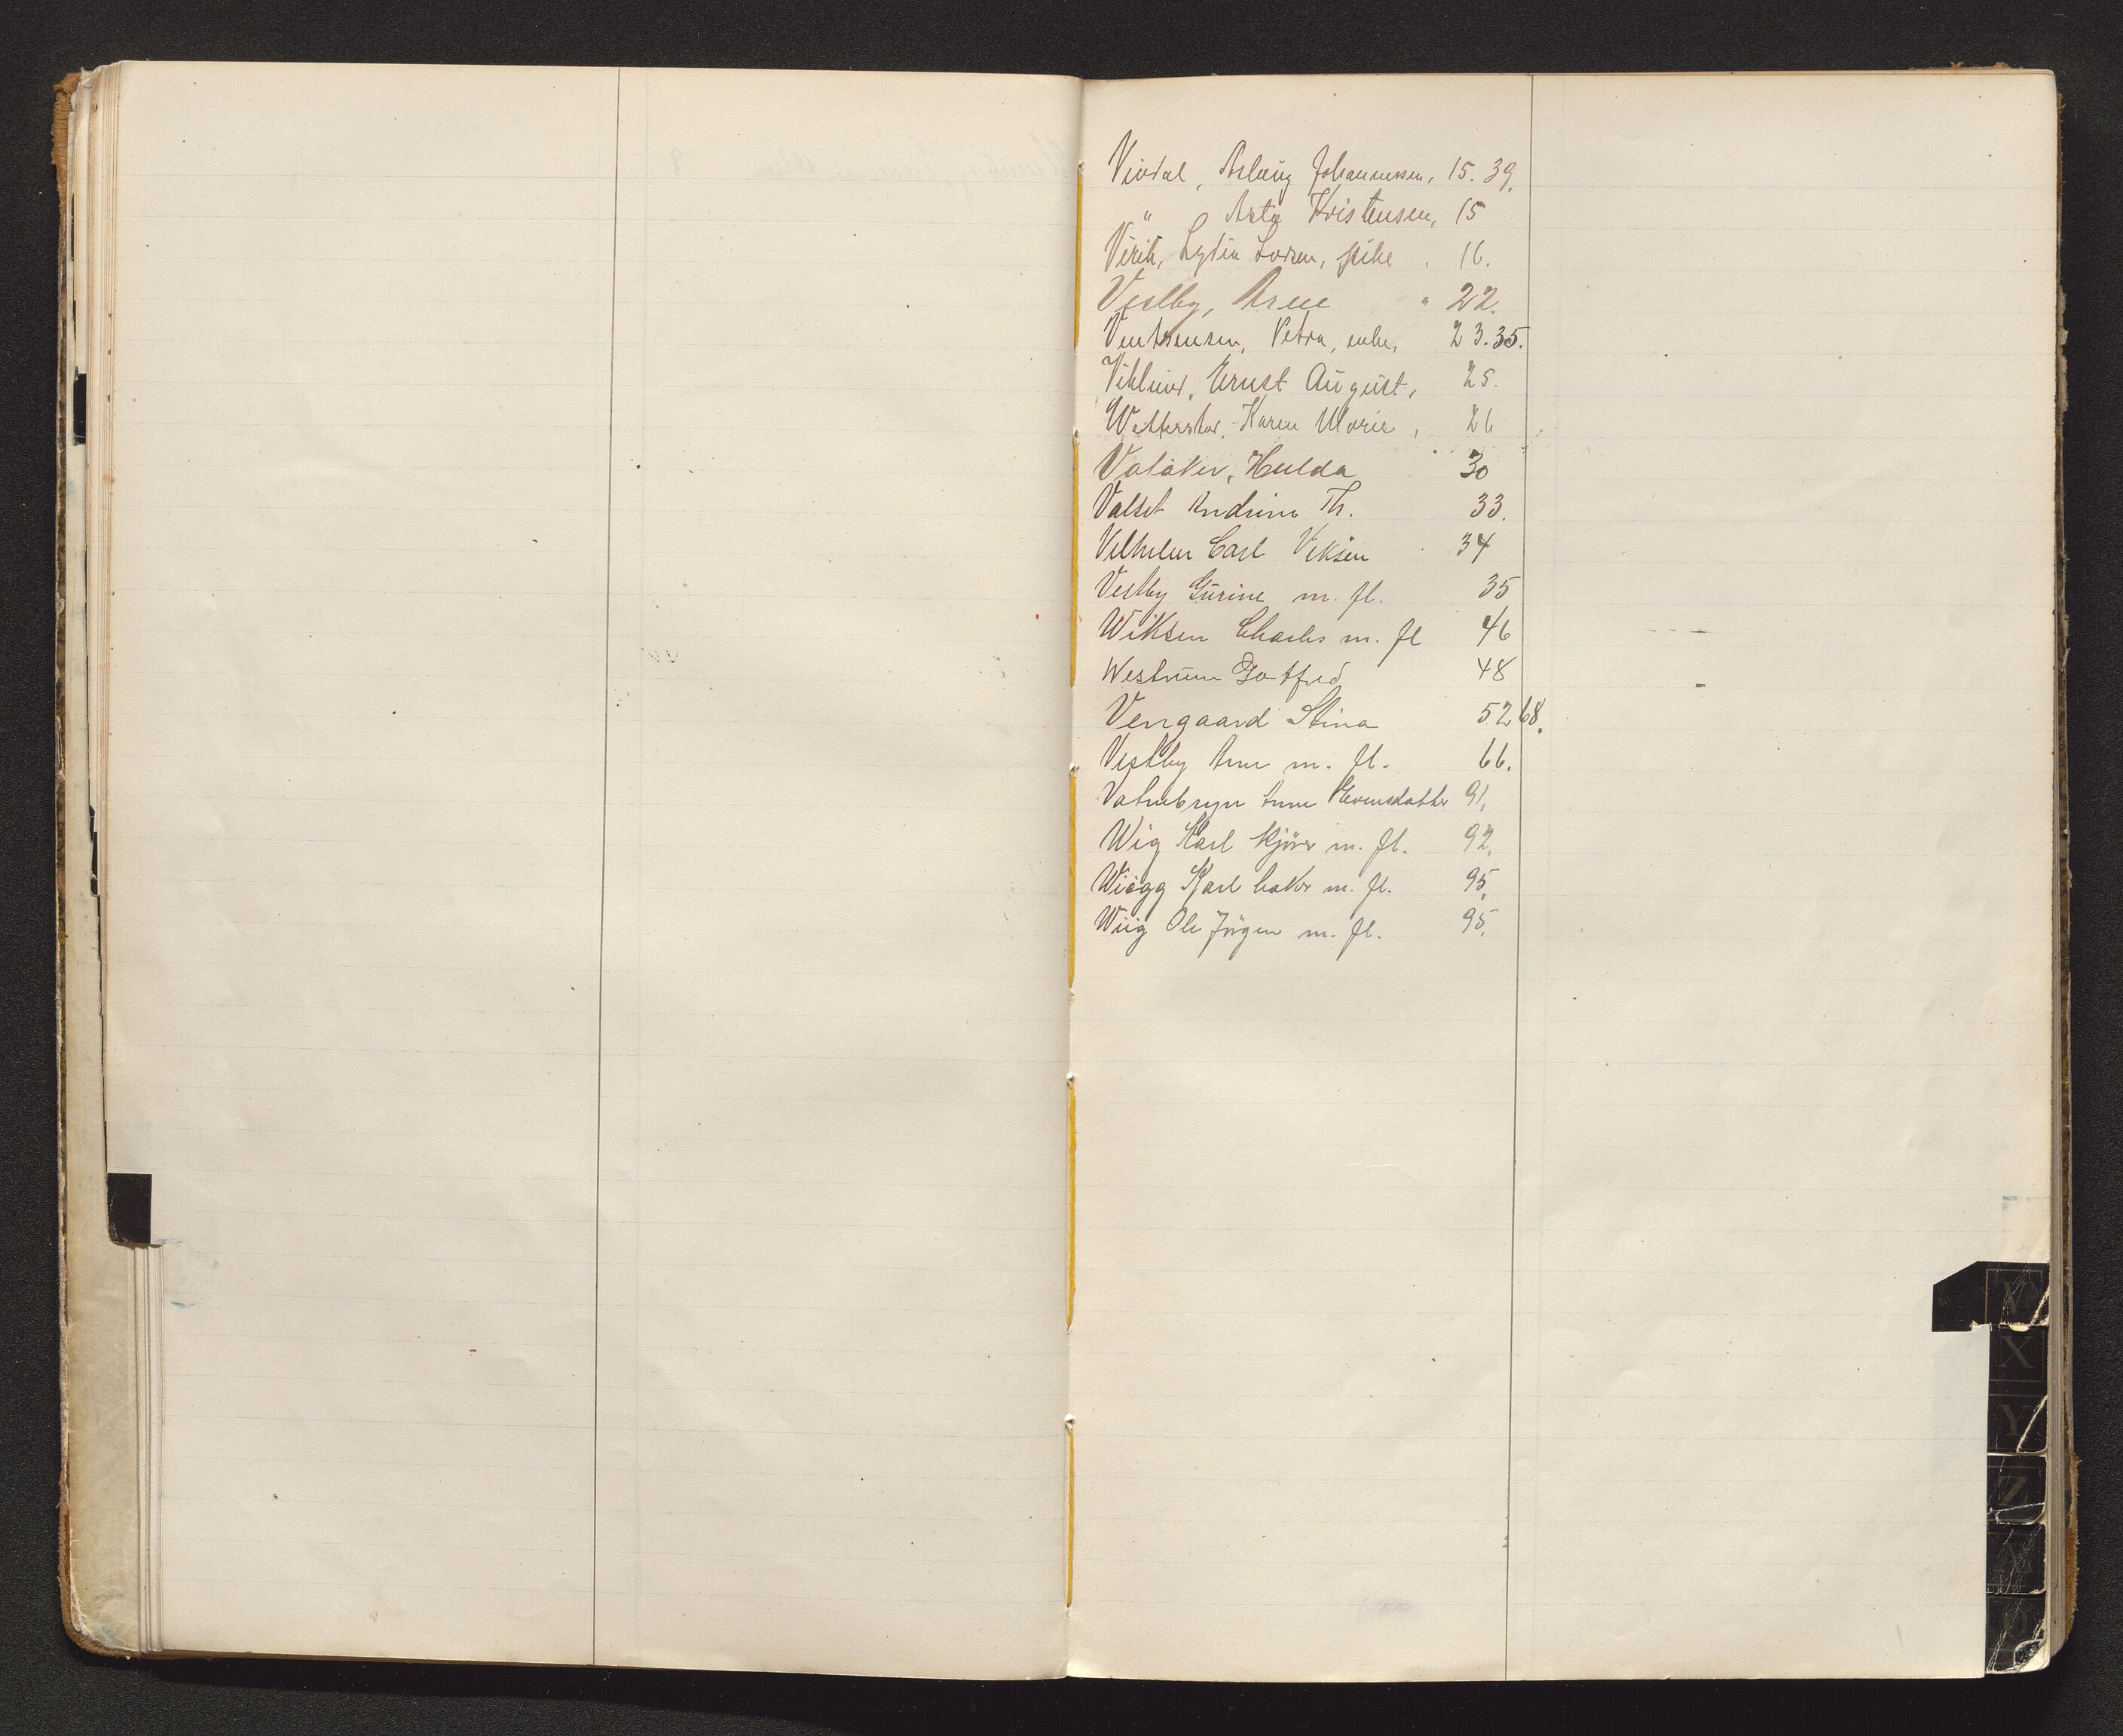 Vindal, Aslaug Johannessen, 15. 39.
" Asta Kristensen, 15
Virik, Lydia Larsen, pike, 16.
Vestby, Arne " 22.
Petra, enke, 23. 35.
Ernst August, 25.
Karen Marie, 26
Valaker, Hulda 30
Valset Andrine Th. 33.
Vilhelm Carl Viksen 34
Vestby Gurine m. fl. 35
Wiksen Charles m. fl 46
Westrum Gotfred 48
Vengaard Stina 52 68.
Vestby Arne m. fl. 66.
Vatnebryn Anne Evensdatter 91,
Wig Karl kjörer m. fl. 92,
Wiegg Karl baker m. fl. 95,
Wiig Ole Jörgen m. fl. 95.
V
X
Y
Z